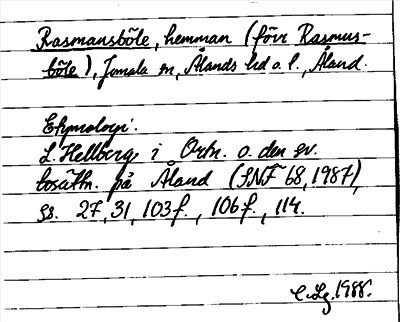 Rasmansböle, hemman (förr Rasmus-
böle), Jomala sn, Ålands hd o. l., Åland.
Etymologi.
L. Hellberg i Ortn. o. den sv.
bosättn. på Åland (SNF 68, 1987),
ss. 27, 31, 103 f., 106 f., 114.
1988.